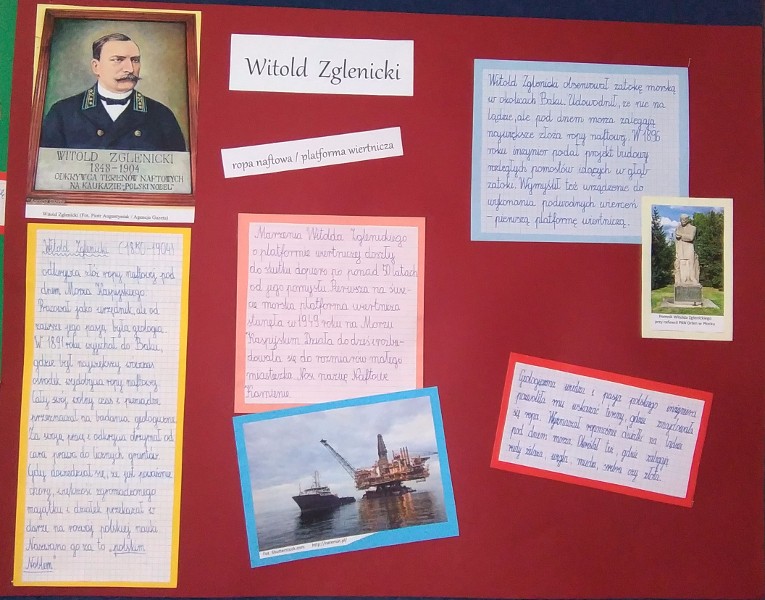 WITOLD ZGLENICKI
1848-1904
ODKRYWCA TERENÓW NAFTOWYCH
NA KAUKAZIE-"POLSKI NOBEL"
Witold Zglenicki (Fot. Piotr Augustyniak / Agencja Gazeta)
Witold Zglenicki
ropa naftowa / platforma wiertnicza
Witold Zglenicki obserwował zatokę morską
w okolicach Baku. Udowodnił, że nie na
lądzie, ale pod dnem morza zalegają
największe złoża ropy naftowej. W 1896
roku inżynier podał projekt budowy
rozległych pomostów idących w głąb
zatoki. Wymyślił też urządzenie do
wykonania podwodnych wierceń
- pierwszą platformę wiertniczą.
Witold Zglenicki (1850-1904)
odkrywca złóż ropy naftowej pod
dnem Morza Kaspijskiego.
Pracował jako urzędnik, ale od
zawsze jego pasją była geologia.
W 1891 roku wyjechał do Baku,
gdzie był największy wówczas
ośrodek wydobycia ropy naftowej.
Cały swój wolny czas i pieniądze
przeznaczał na badania geologiczne.
Za swoją pracę i odkrycia otrzymał od
cara prawa do licznych gruntów.
Gdy dowiedział się, że jest poważnie
chory, większość zgromadzonego
majątku i działek przekazał w
darze na rozwój polskiej nauki.
Nazwano go za to "polskim
Noblem"
Marzenia Witolda Zglenickiego
o platformie wiertniczej doszły
do skutku dopiero po ponad 50 latach
od jego pomysłu. Pierwsza na świe-
cie morska platforma wiertnicza
stanęła w 1949 roku na Morzu
Kaspijskim. Działa do dziś i rozbu-
dowała się do rozmiarów małego
miasteczka. Nosi nazwę Naftowe
Kamienie.
Pomnik Witolda Zglenickiego
przy rafinerii PKN Orlen w Płocku
Geologiczna wiedza i pasja polskiego inżyniera
pozwoliła mu wskazać tereny, gdzie znajdowała
się ropa. Wyznaczał roponośne działki na lądzie i
pod dnem morza. Określił też, gdzie zalegają
rudy żelaza, węgla, miedzi, srebra czy złota.
Fot. Shutterstock.com